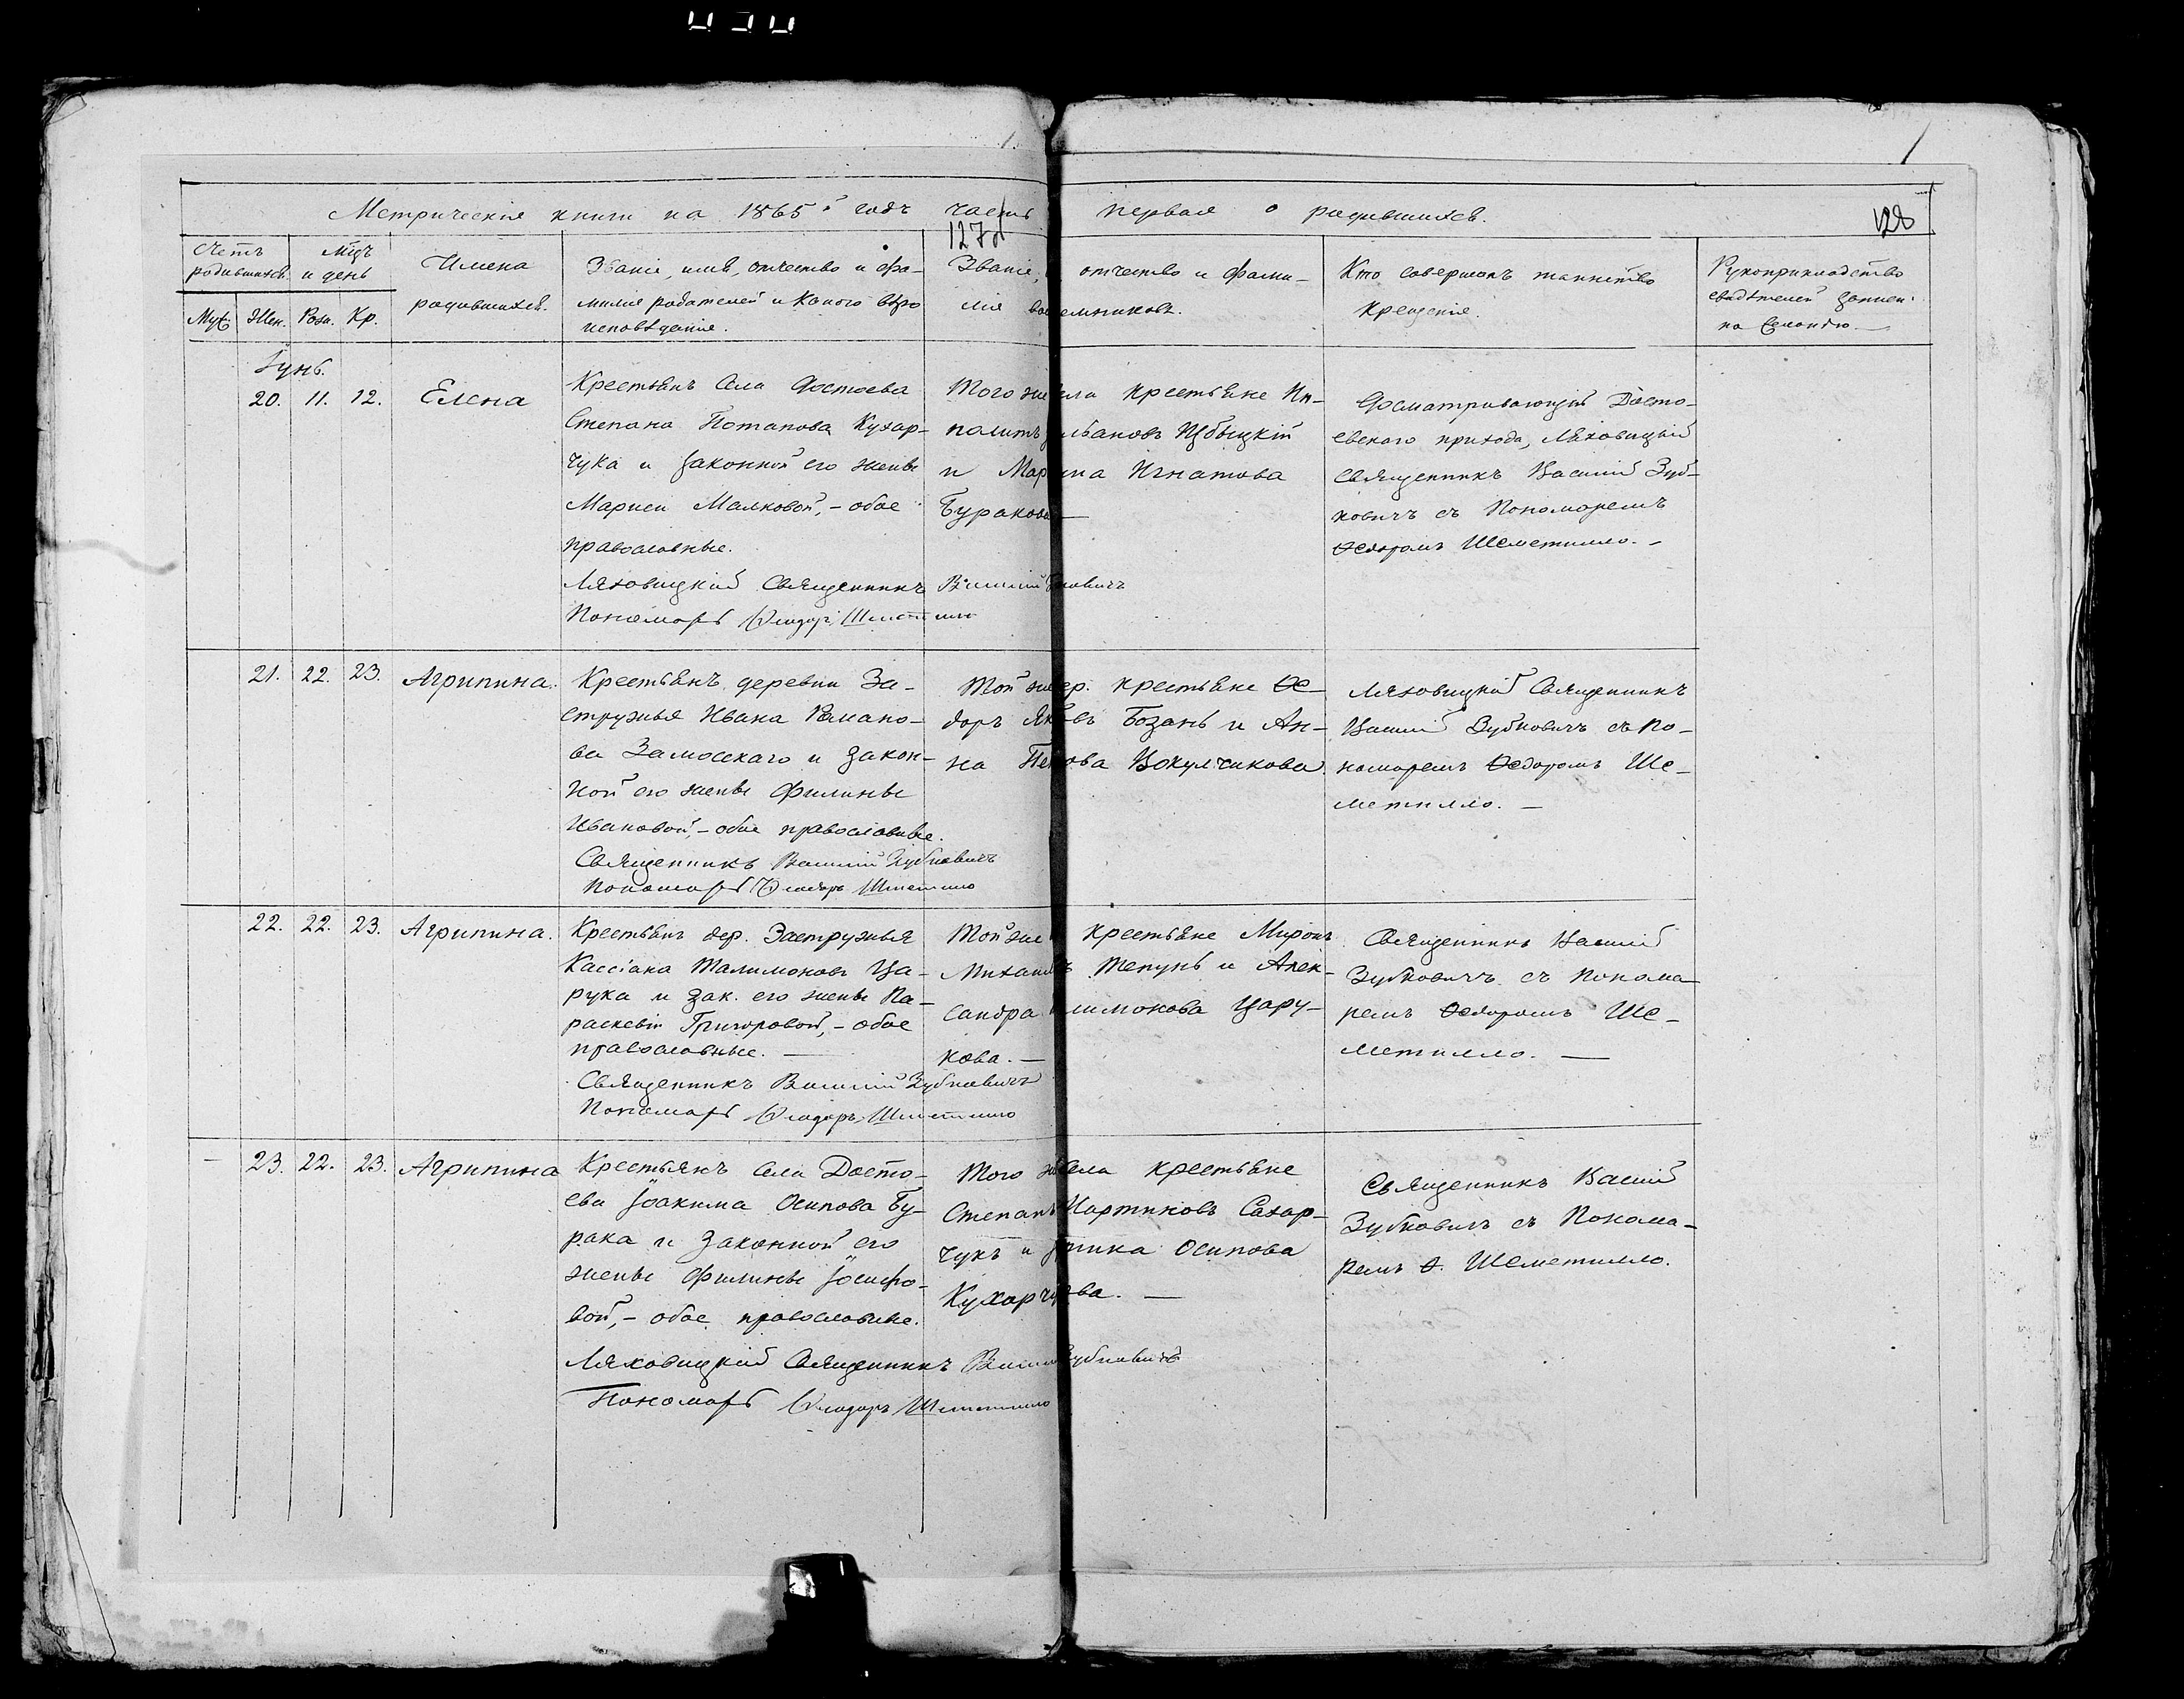 Метрическія книги на 1865й годъ часть первая о родившихся.
127об
128
Счетъ родившихся
Мцъ и день
Имена родившихся.
Званіе, имя, отчество и фа-
милія родителей и какого вѣро
исповѣданія.
Званіе, отчество и фами-
лія воспріемниковъ.
Кто совершалъ таинство
крещенія.
Рукоприкладство
свидѣтелей записи
по желанію.
Муж. Жен. Рожд. Кр.
Іунь.
20. 11. 12. Елена
Крестьянъ села Достоева
Степана Потапова Кухар-
чука и законной его жены
Марисы Малковой, - обое
православные.
Ляховицкій Священникъ Василій Зубковичъ
Пономарь Ѳеодоръ Шеметилло
Того же села крестьяне Ип-
политъ Ивановъ
и Марина Игнатова
Буракова
Присматривающій Досто-
евскаго прихода, Ляховицкій
Священникъ Василій Зуб-
ковичъ съ Пономаремъ
Ѳедоромъ Шеметилло. -
21. 22. 23. Агрипина.
Крестьянъ деревни За-
стружья Ивана Романо-
ва Замосскаго и закон-
ной его жены Филицы
Ивановой, - обое православные.
Священникъ Василій Зубковичъ
Пономарь Ѳеодоръ Шеметилло
Той же дер. крестьяне Ѳе-
доръ Яковъ Бозань и Ан-
на Петрова Вокульчикова.
Ляховицкій Священникъ
Василій Зубковичъ съ по-
номаремъ Ѳедоромъ Ше-
метилло. -
22. 22. 23. Агрипина.
Крестьянъ дер. Застружья
Кассіана Талимонова Ца-
рука и зак. его жены Па-
раскевіи Григоровой, - обое
православные. -
Священникъ Василій Зубковичъ
Пономарь Ѳеодоръ Шеметилло
Той же крестьяне Миронъ
Михаиловъ Тепунь и Алек-
сандра Филимонова Цару-
кова. -
Священникъ Василій
Зубковичъ съ понома-
ремъ Ѳедоромъ Ше-
метилло. -
- 23. 22. 23. Агрипина
Крестьянъ села Досто-
ева Іоакима Осипова Бу-
рака и законной его
жены Филицы Іосифо-
вой, - обое православные.
Ляховицкій Священникъ Василій Зубковичъ
Пономарь Ѳеодоръ Шеметилло
Того же села крестьяне
Степанъ Мартиновъ Сахар-
чукъ и Осипова
Кухарчукова. -
Священникъ Василій
Зубковичъ съ Понома-
ремъ Ѳ. Шеметилло.